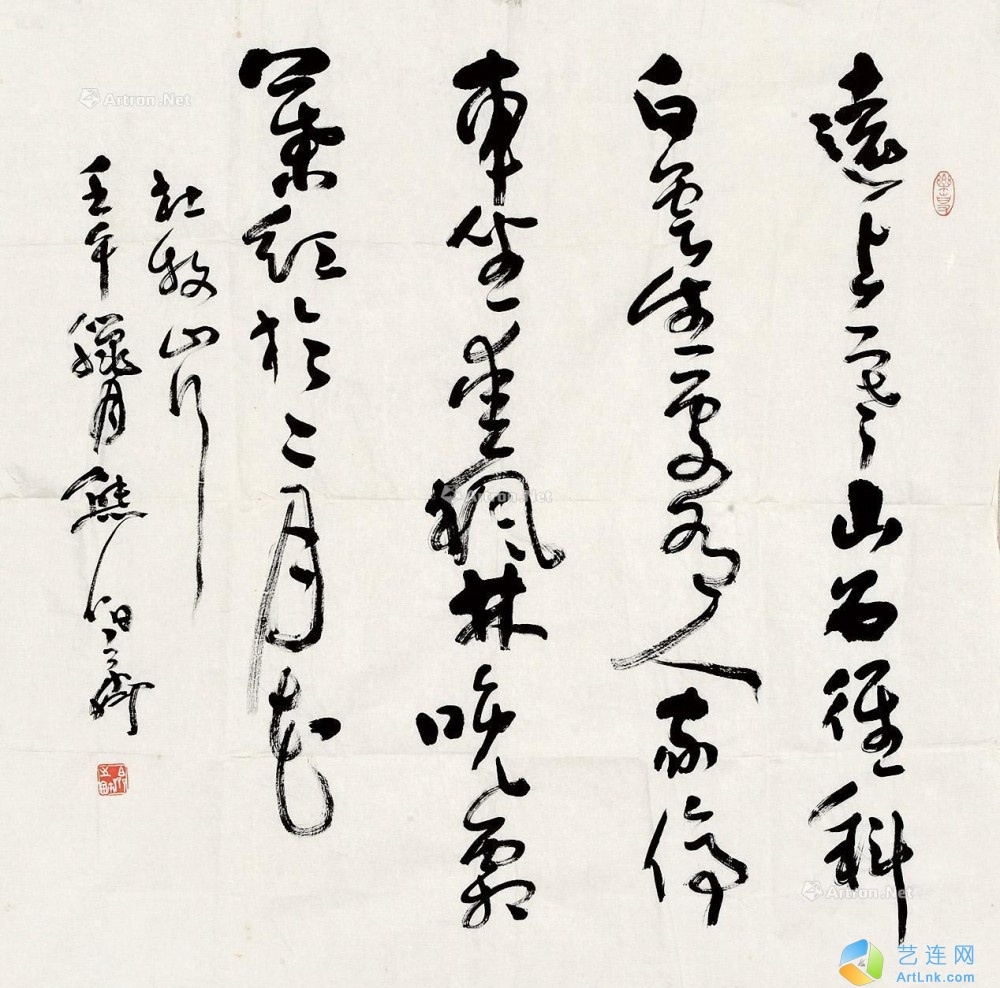 遠上寒山石徑斜
白雲生處有人家停
車坐愛楓林晚霜
葉紅於二月花
杜牧山行
壬午臘月熊伯齊
Artron.Net
Artron.Net
Artron.Net
艺连网
ArtLnk.com